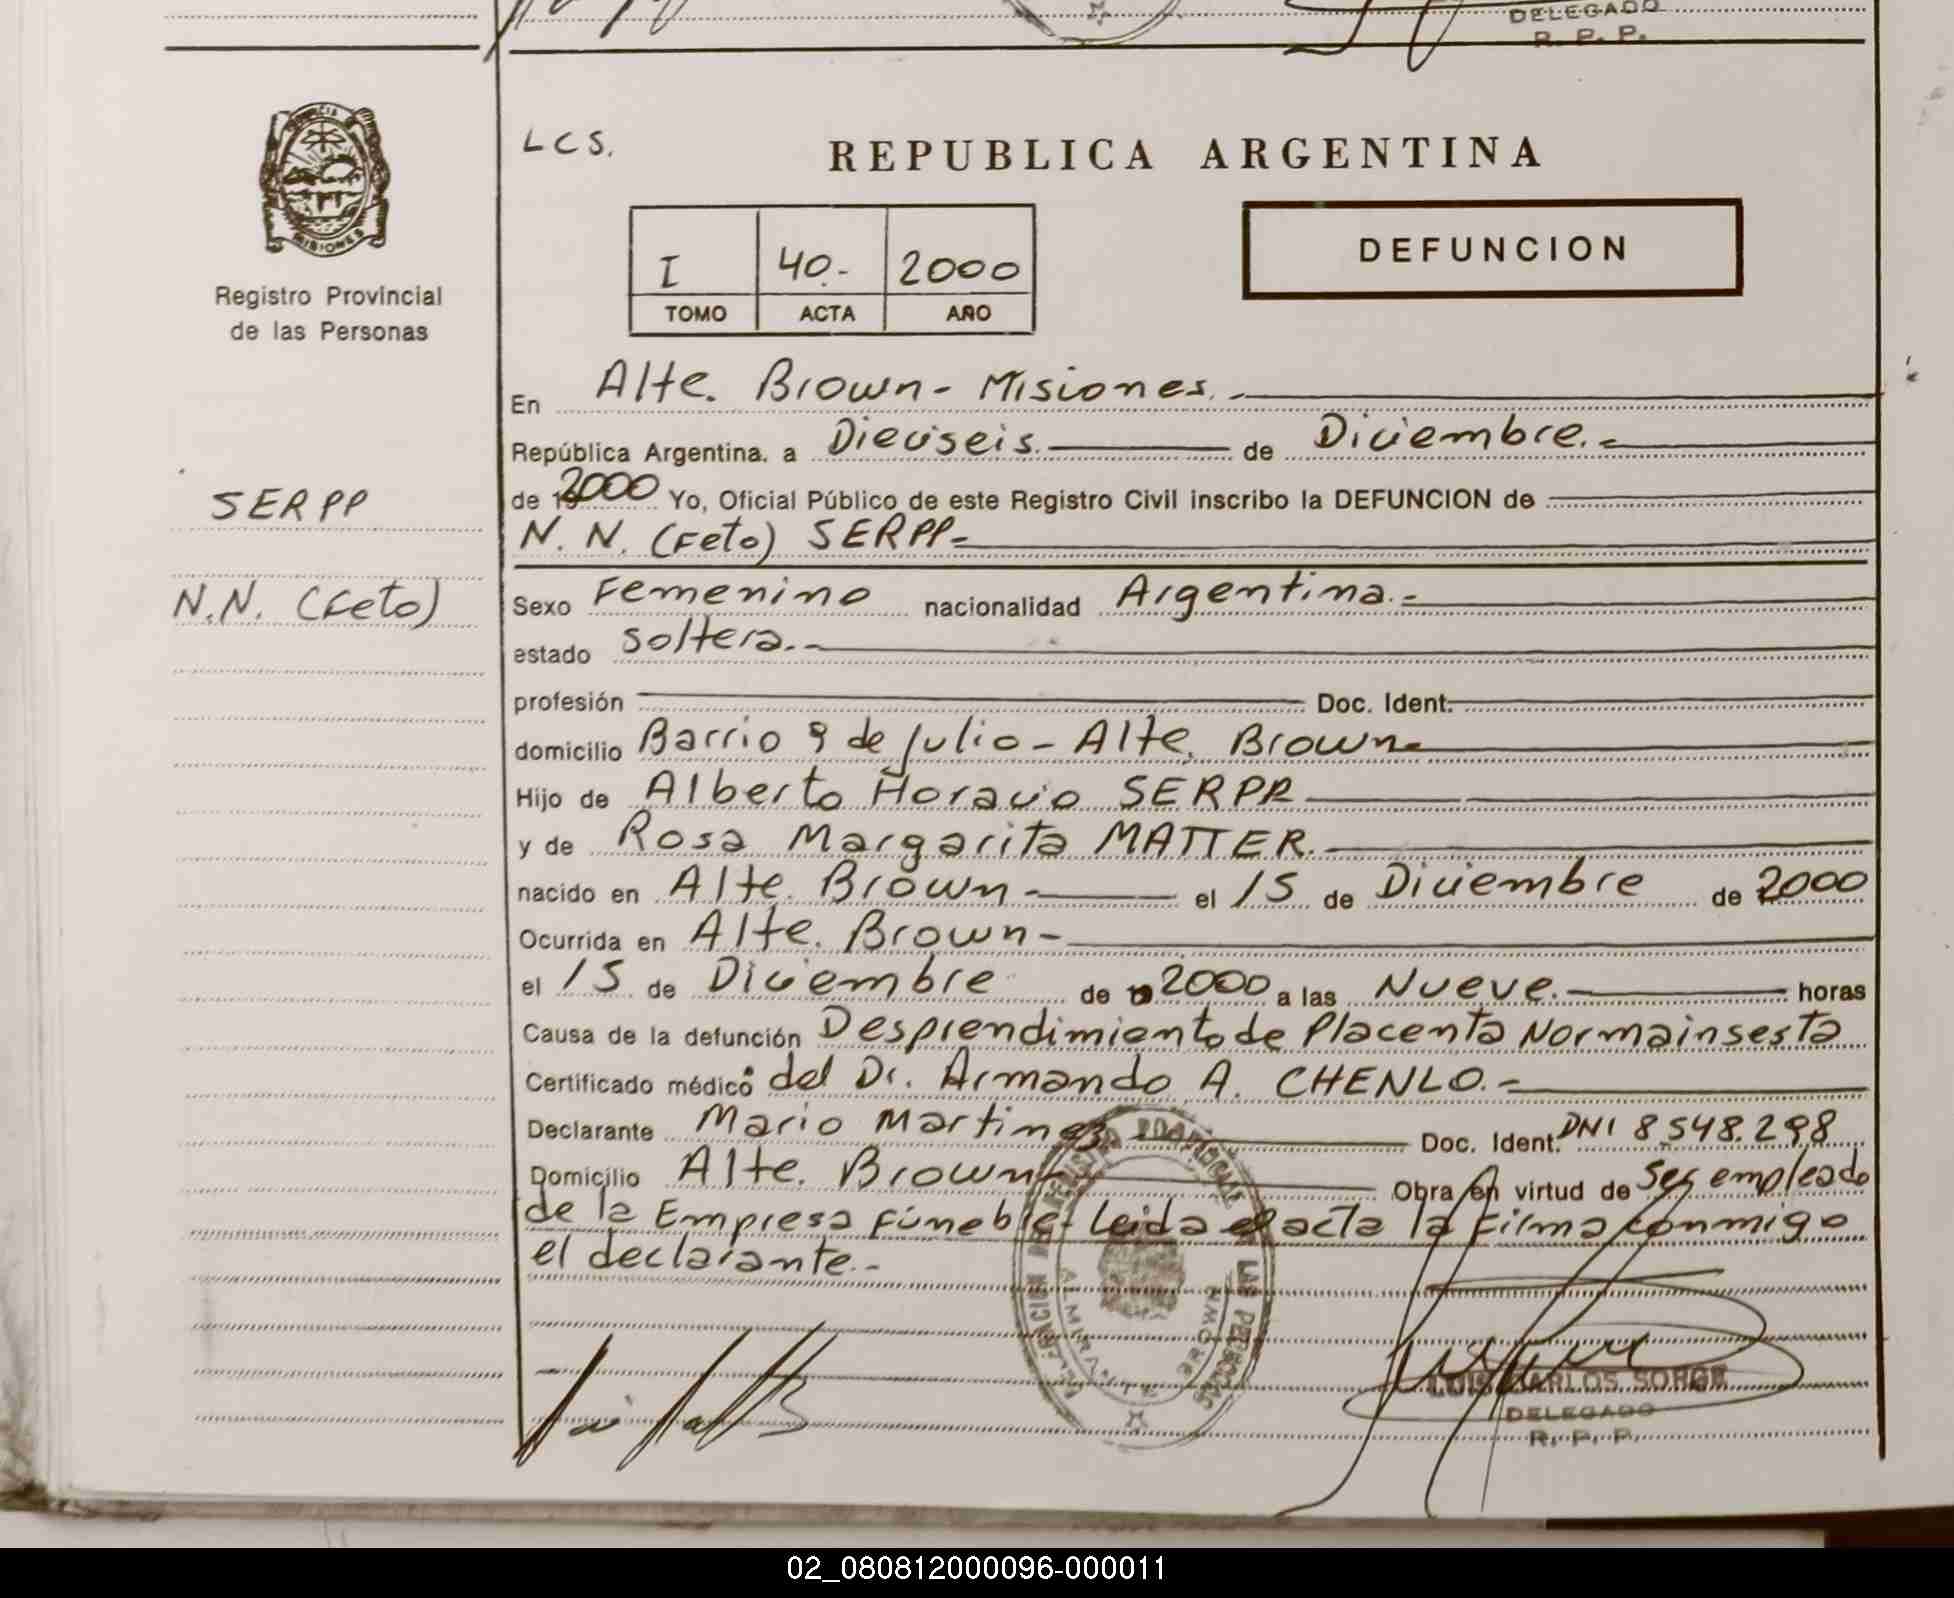 DELEGADO
R. P. P.
PROVINCIA
MISIONES
Registro Provincial
de las Personas
SERPP
N.N. (Feto)
LCS.
REPUBLICA ARGENTINA
I 40.- 2000
TOMO ACTA AÑO
DEFUNCION
En Alte. Brown - Misiones.-
República Argentina. a Dieciseis. de Diciembre.-
de 19 2000 Yo, Oficial Público de este Registro Civil inscribo la DEFUNCION de
N. N. (Feto) SERPP-
Sexo Femenino nacionalidad Argentina.-
estado soltera.-
profesión Doc. Ident.
domicilio Barrio 9 de Julio - Alte. Brown-
Hijo de Alberto Horacio SERPP
y de Rosa Margarita MATTER.
nacido en Alte. Brown - el 15 de Diciembre de 2000
Ocurrida en Alte. Brown -
el 15 de Diciembre de 2000 a las Nueve. horas
Causa de la defunción Desprendimiento de Placenta Normainsesta
Certificado médico del Dr. Armando A. CHENLO.-
Declarante Mario Martinez Doc. Ident. DNI 8.548.298
Domicilio Alte. Brown Obra en virtud de Ser empleado
de la Empresa Fúnebre- Leida el acta la firma conmigo
el declarante.-
ALMIRANTE BROWN
LUIS CARLOS SORGE
DELEGADO
R. P. P.
02_080812000096-000011